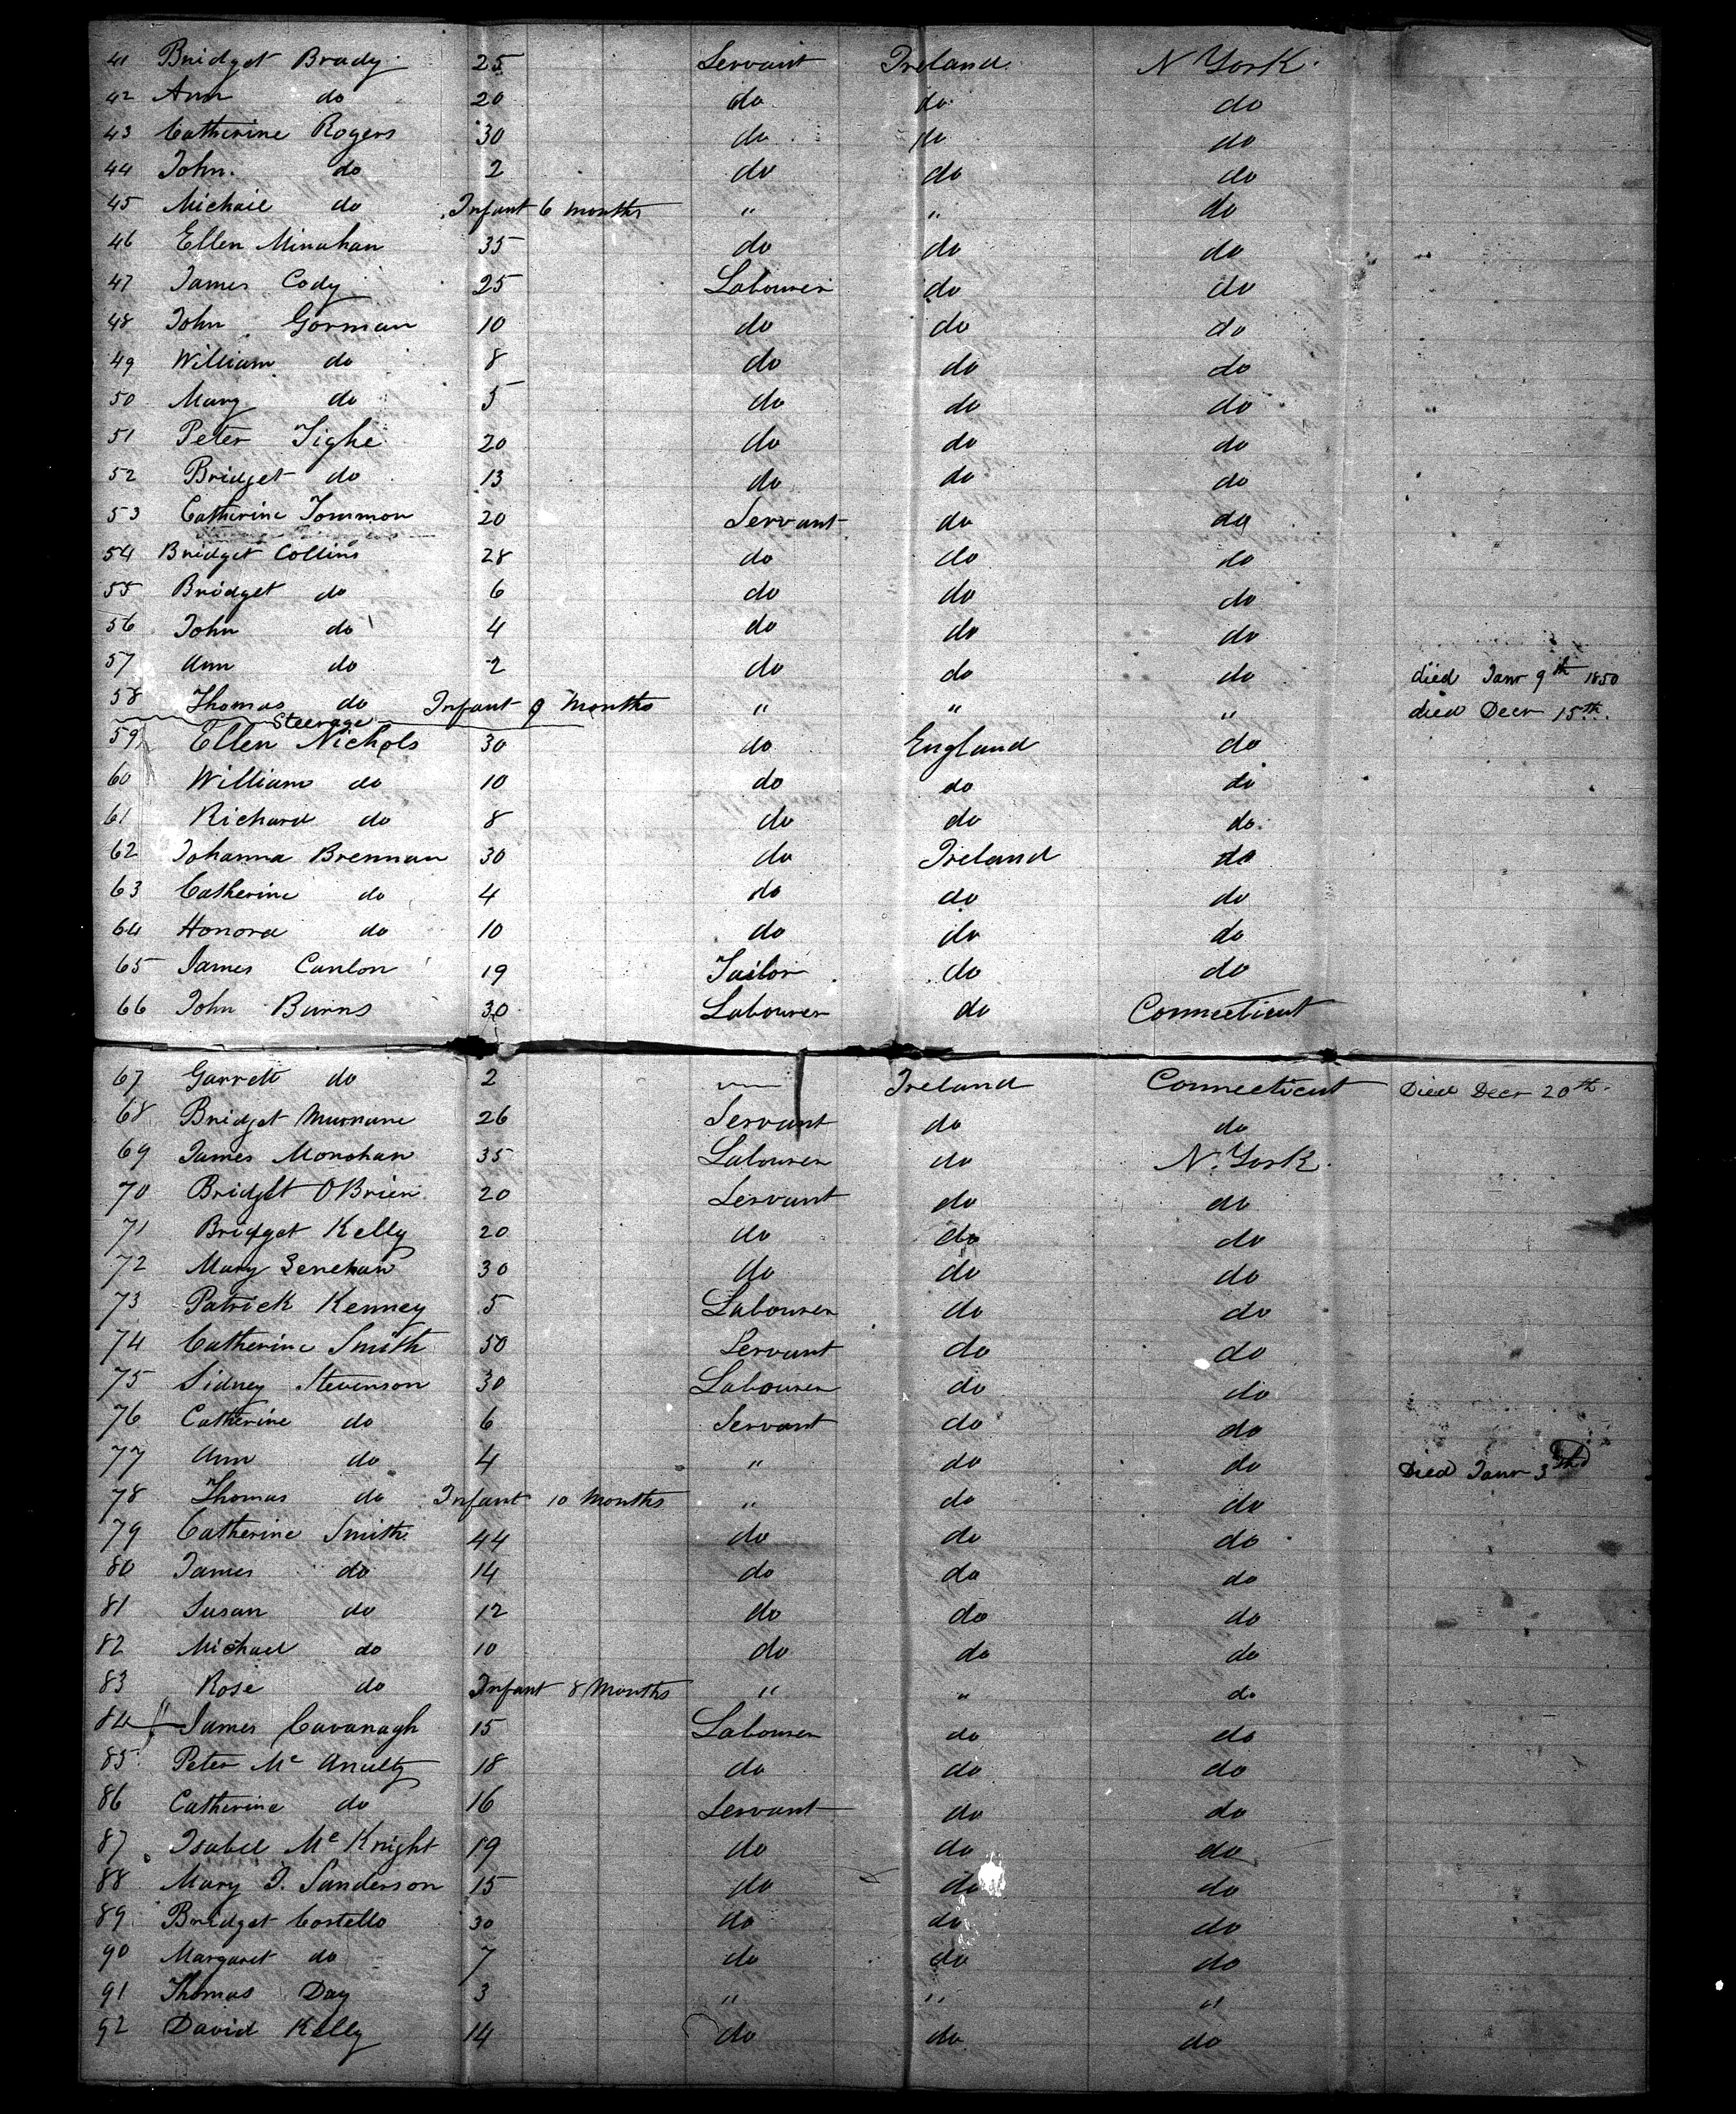 41 Bridget Brady 25 Servant Ireland N York
42 Ann do 20 do do do
43 Catherine Rogers 30 do do do
44 John do 2 do do do
45 Michail do Infant 6 months " " do
46 Ellen Minahan 35 do do do
47 James Cody 25 Labourer do do
48 John Gorman 10 do do do
49 William do 8 do do do
50 Mary do 5 do do do
51 Peter Tighe 20 do do do
52 Bridget do 13 do do do
53 Catherine Tommon 20 Servant do do
54 Bridget Collins 28 do do do
55 Bridget do 6 do do do
56 John do 4 do do do
57 Ann do 2 do do do died Janr 9th 1850
58 Thomas do Infant 9 Months " " " died Decr 15th
Steerage
59 Ellen Nichols 30 do England do
60 William do 10 do do do
61 Richard do 8 do do do
62 Johanna Brennan 30 do Ireland do
63 Catherine do 4 do do do
64 Honora do 10 do do do
65 James Canlon 19 Tailor do do
66 John Burns 30 Labourer do Connecticut
67 Garrett do 2 Ireland Connecticut Died Decr 20th
68 Bridget Murnane 26 Servant do do
69 James Monohan 35 Labourer do N. York
70 Bridget OBrien 20 Servant do do
71 Bridget Kelly 20 do do do
72 Mary 30 do do do
73 Patrick Kenney 5 Labourer do do
74 Catherine Smith 50 Servant do do
75 Sidney Stevenson 30 Labourer do do
76 Catherine do 6 Servant do do
77 Ann do 4 " do do Died Janr 3rd
78 Thomas do Infant 10 Months " do do
79 Catherine Smith 44 do do do
80 James do 14 do do do
81 Susan do 12 do do do
82 Michael do 10 do do do
83 Rose do Infant 8 Months " " do
84 James Cavanagh 15 Labourer do do
85 Peter Mc Anulty 18 do do do
86 Catherine do 16 Servant do do
87 Isabel Mc Knight 19 do do do
88 Mary J. Sanderson 15 do do do
89 Bridget Costello 30 do do do
90 Margaret do 7 do do do
91 Thomas Day 3 " " "
92 David Kelly 14 do do do